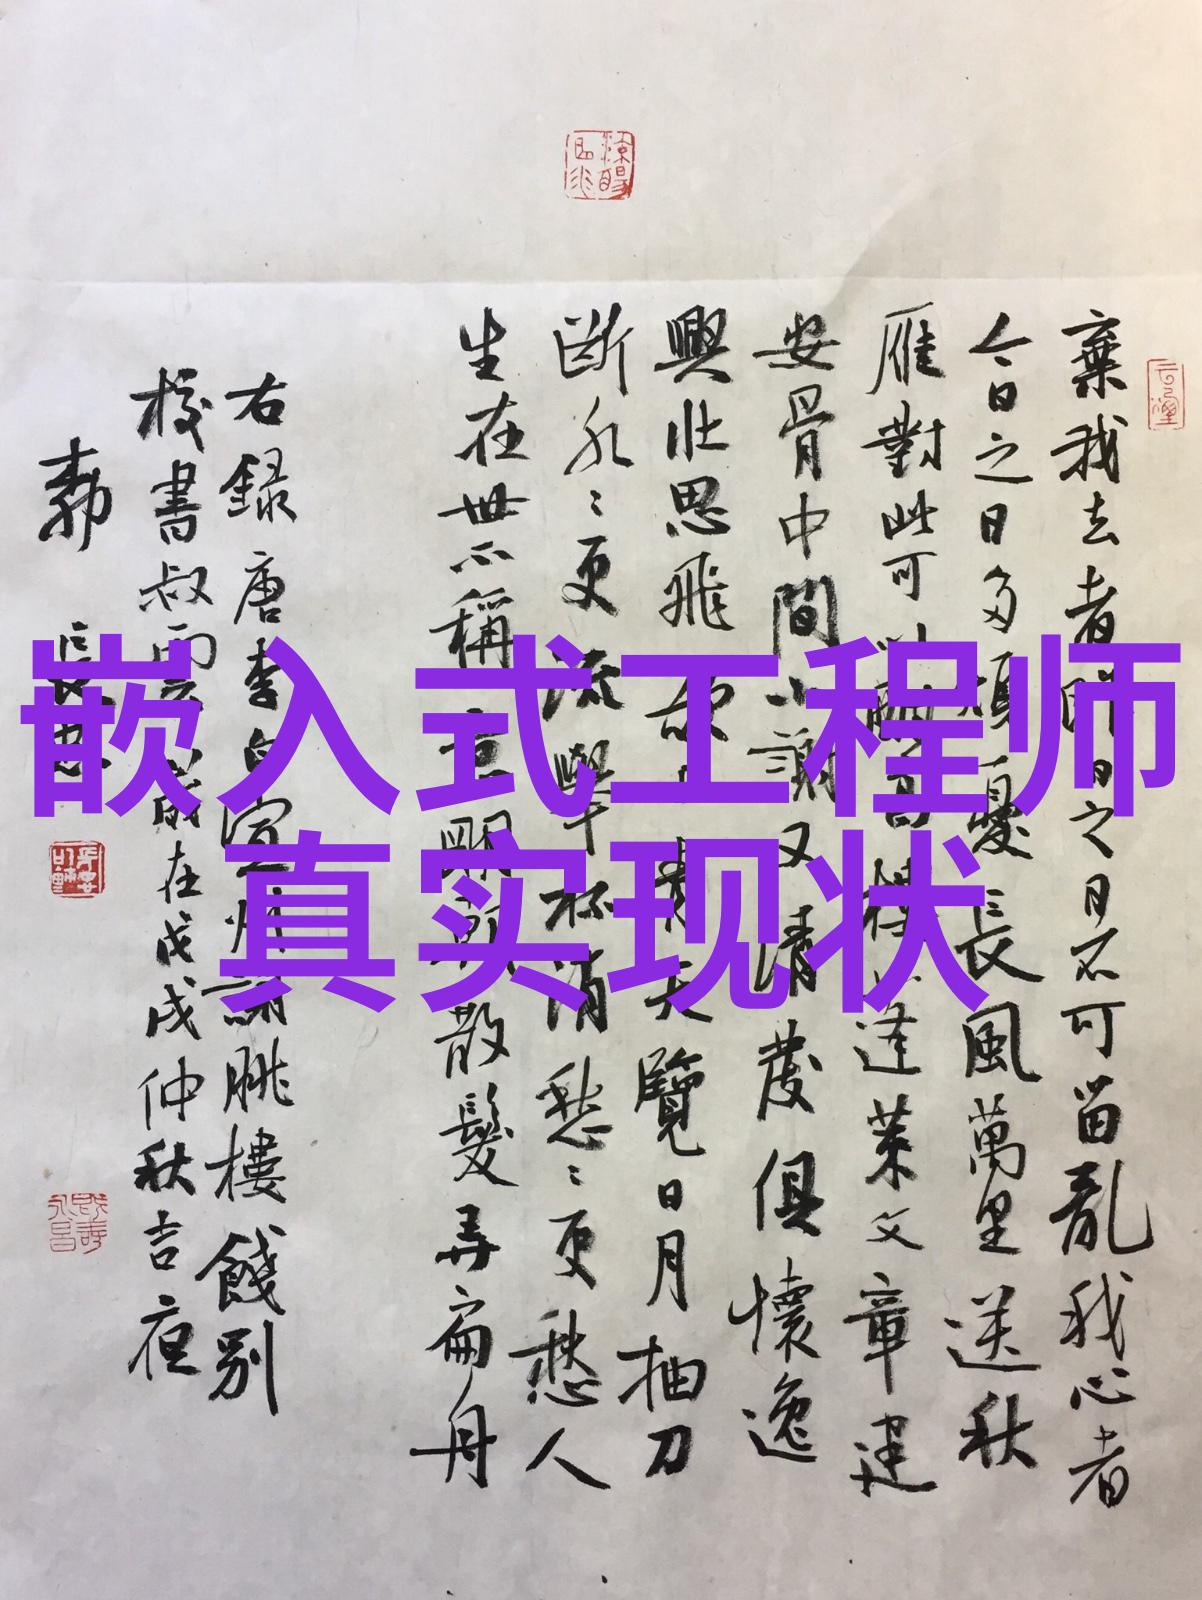 嵌入式工程师
真实现状
棄我去者昨日之日不可留亂我心者
今日之日多煩憂長風萬里送秋
雁對此可以酣高樓蓬萊文章建
安骨中間小謝又清發俱懷逸
興壯思飛欲上青天覽日月抽刀
斷水〻更流舉杯消愁〻更愁人
生在世不稱意明朝散髮弄扁舟
右録唐李白宣州謝朓樓餞別
校書叔雲歲在戊戌仲秋吉夜